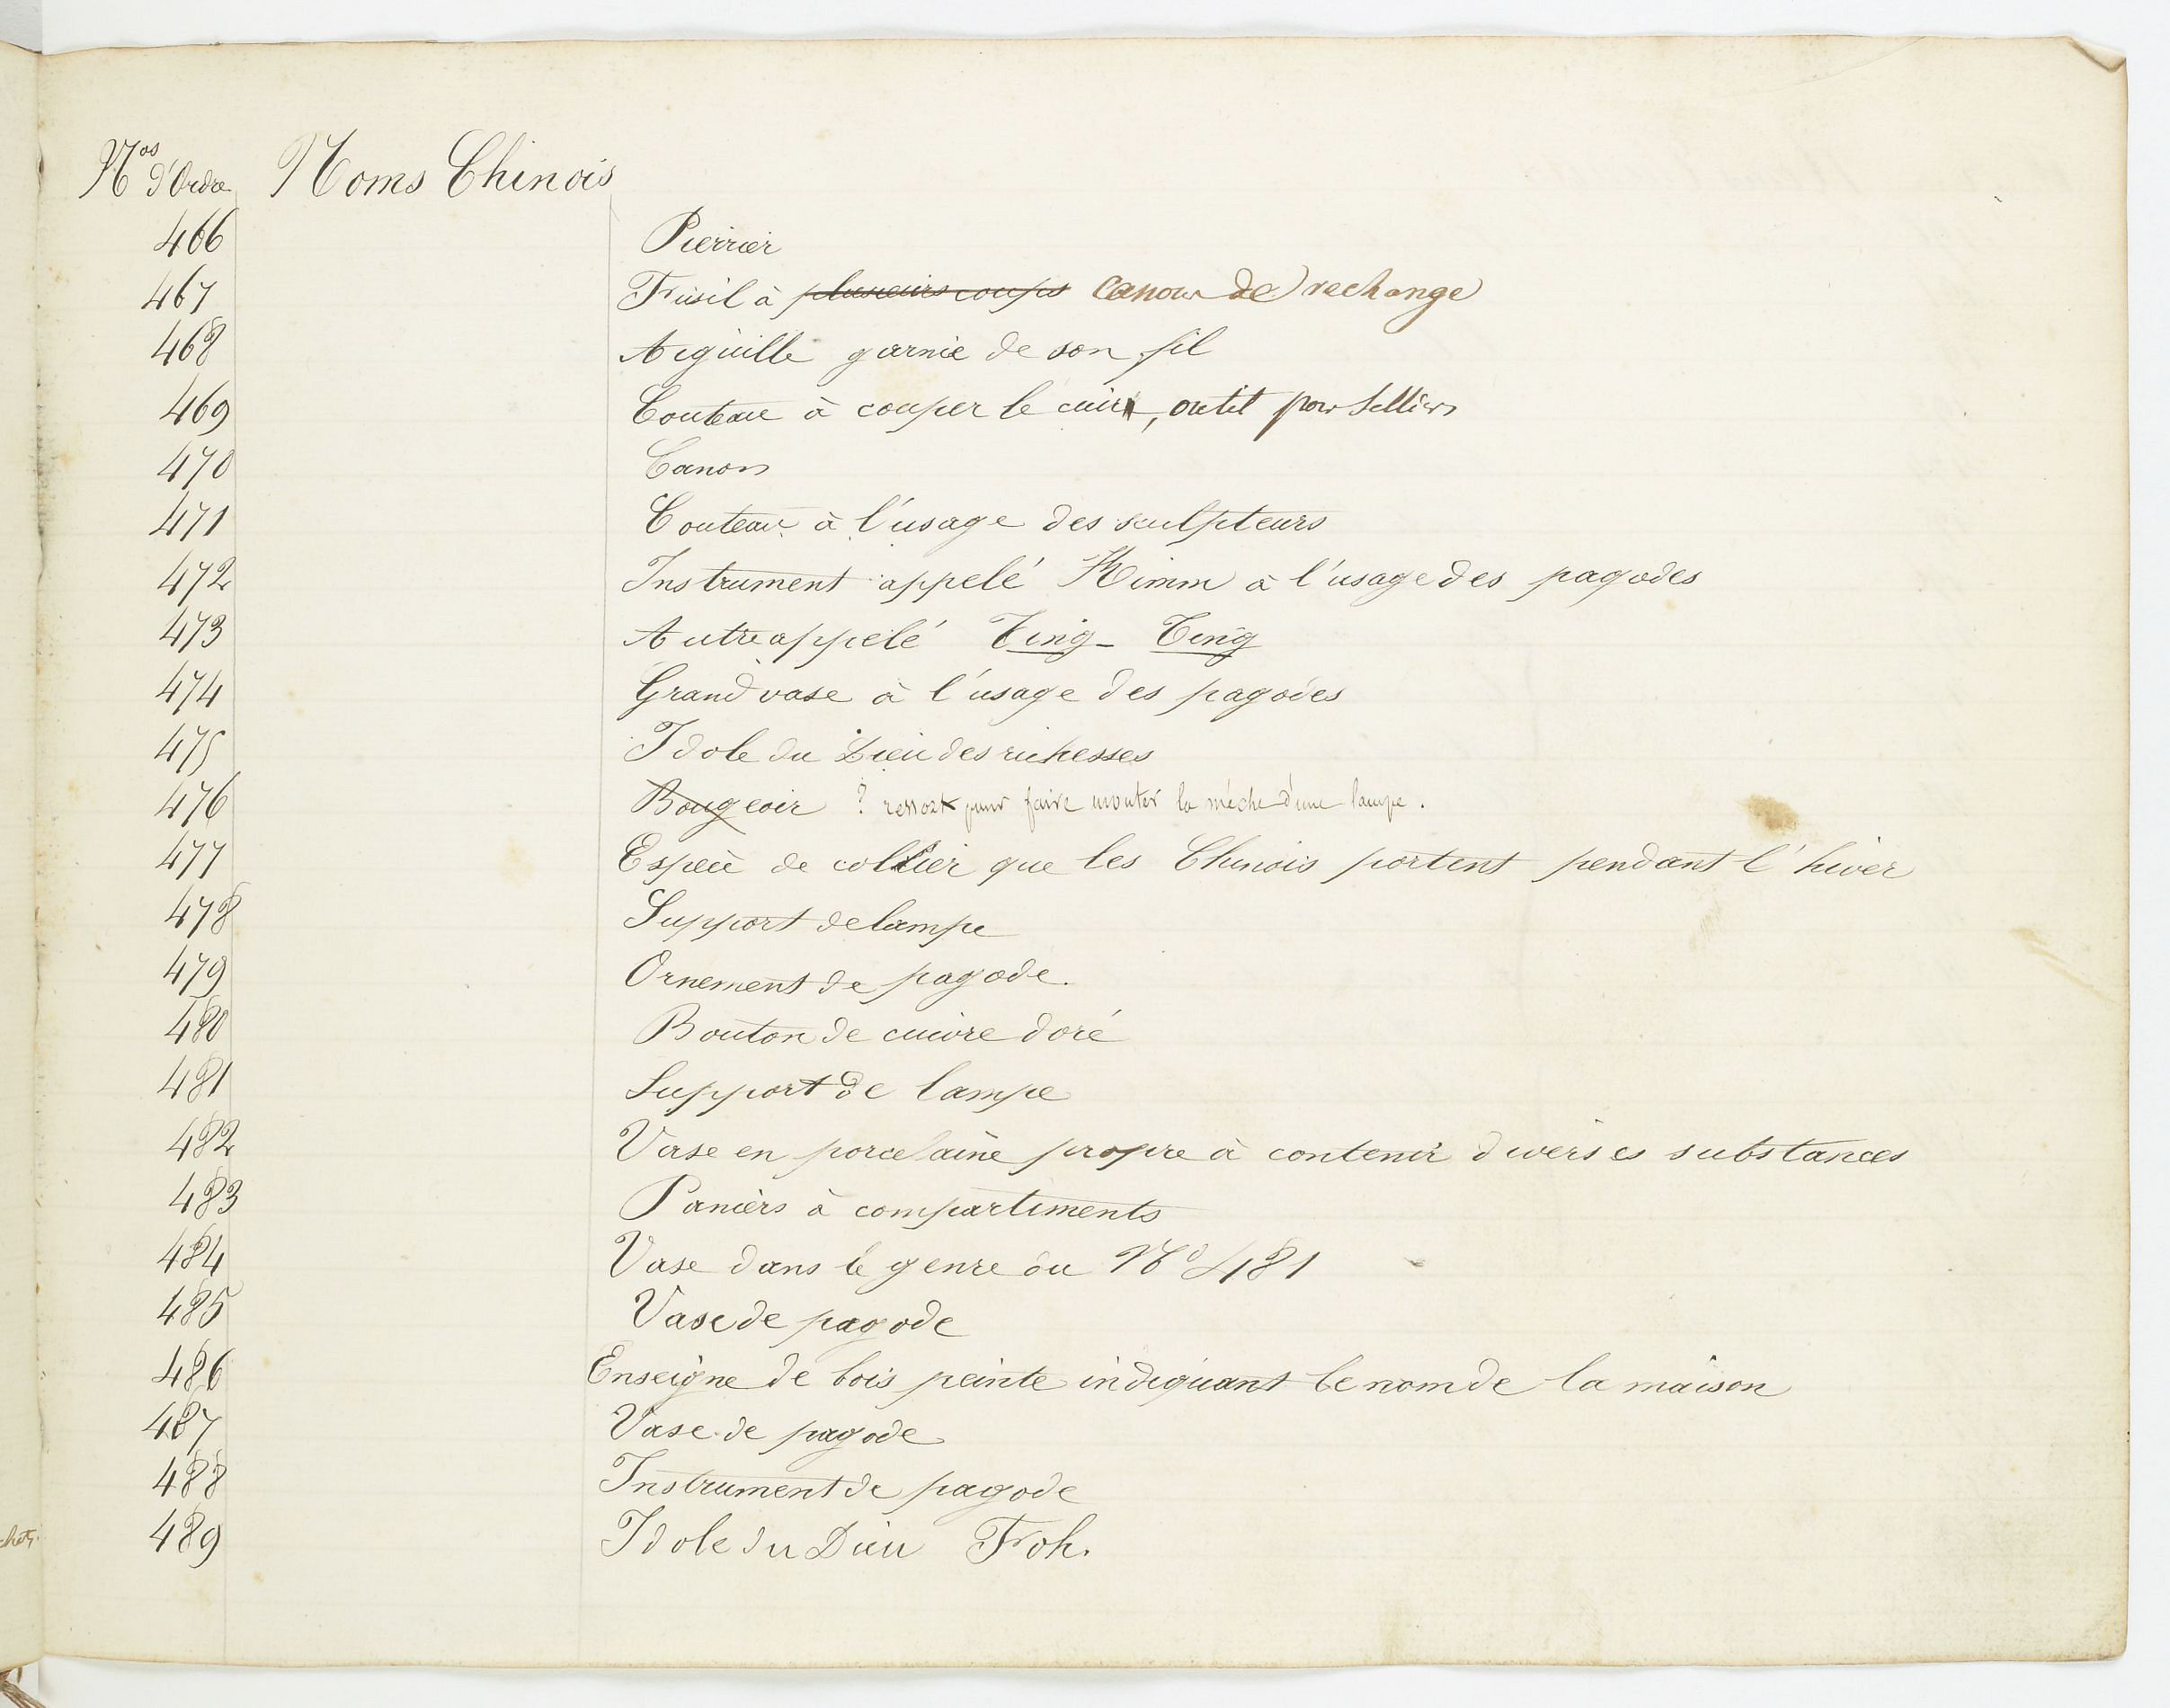 Nos d'Ordre Noms Chinois
466 Pierrier
467 Fusil à plusieurs coups canons de rechange
468 Aiguille garnie de son fil
469 Couteau à couper le cuir, outil pour selliers
470 Canon
471 Couteau à l'usage des sculpteurs
472 Instrument appelé Kimm à l'usage des pagodes
473 Autre appelé Ting-Ting
474 Grand vase à l'usage des pagodes
475 Idole du Dieu des richesses
476 Bougeoir ? ressort pour faire monter la mèche d'une lampe.
477 Espèce de collier que les Chinois portent pendant l'hiver
478 Support de lampe
479 Ornement de pagode.
480 Bouton de cuivre doré
481 Support de lampe
482 Vase en porcelaine propre à contenir diverses substances
483 Paniers à compartiments
484 Vase dans le genre du No 481
485 Vase de pagode
486 Enseigne de bois peinte indiquant le nom de la maison
487 Vase de pagode
488 Instrument de pagode
489 Idole du Dieu Foh.